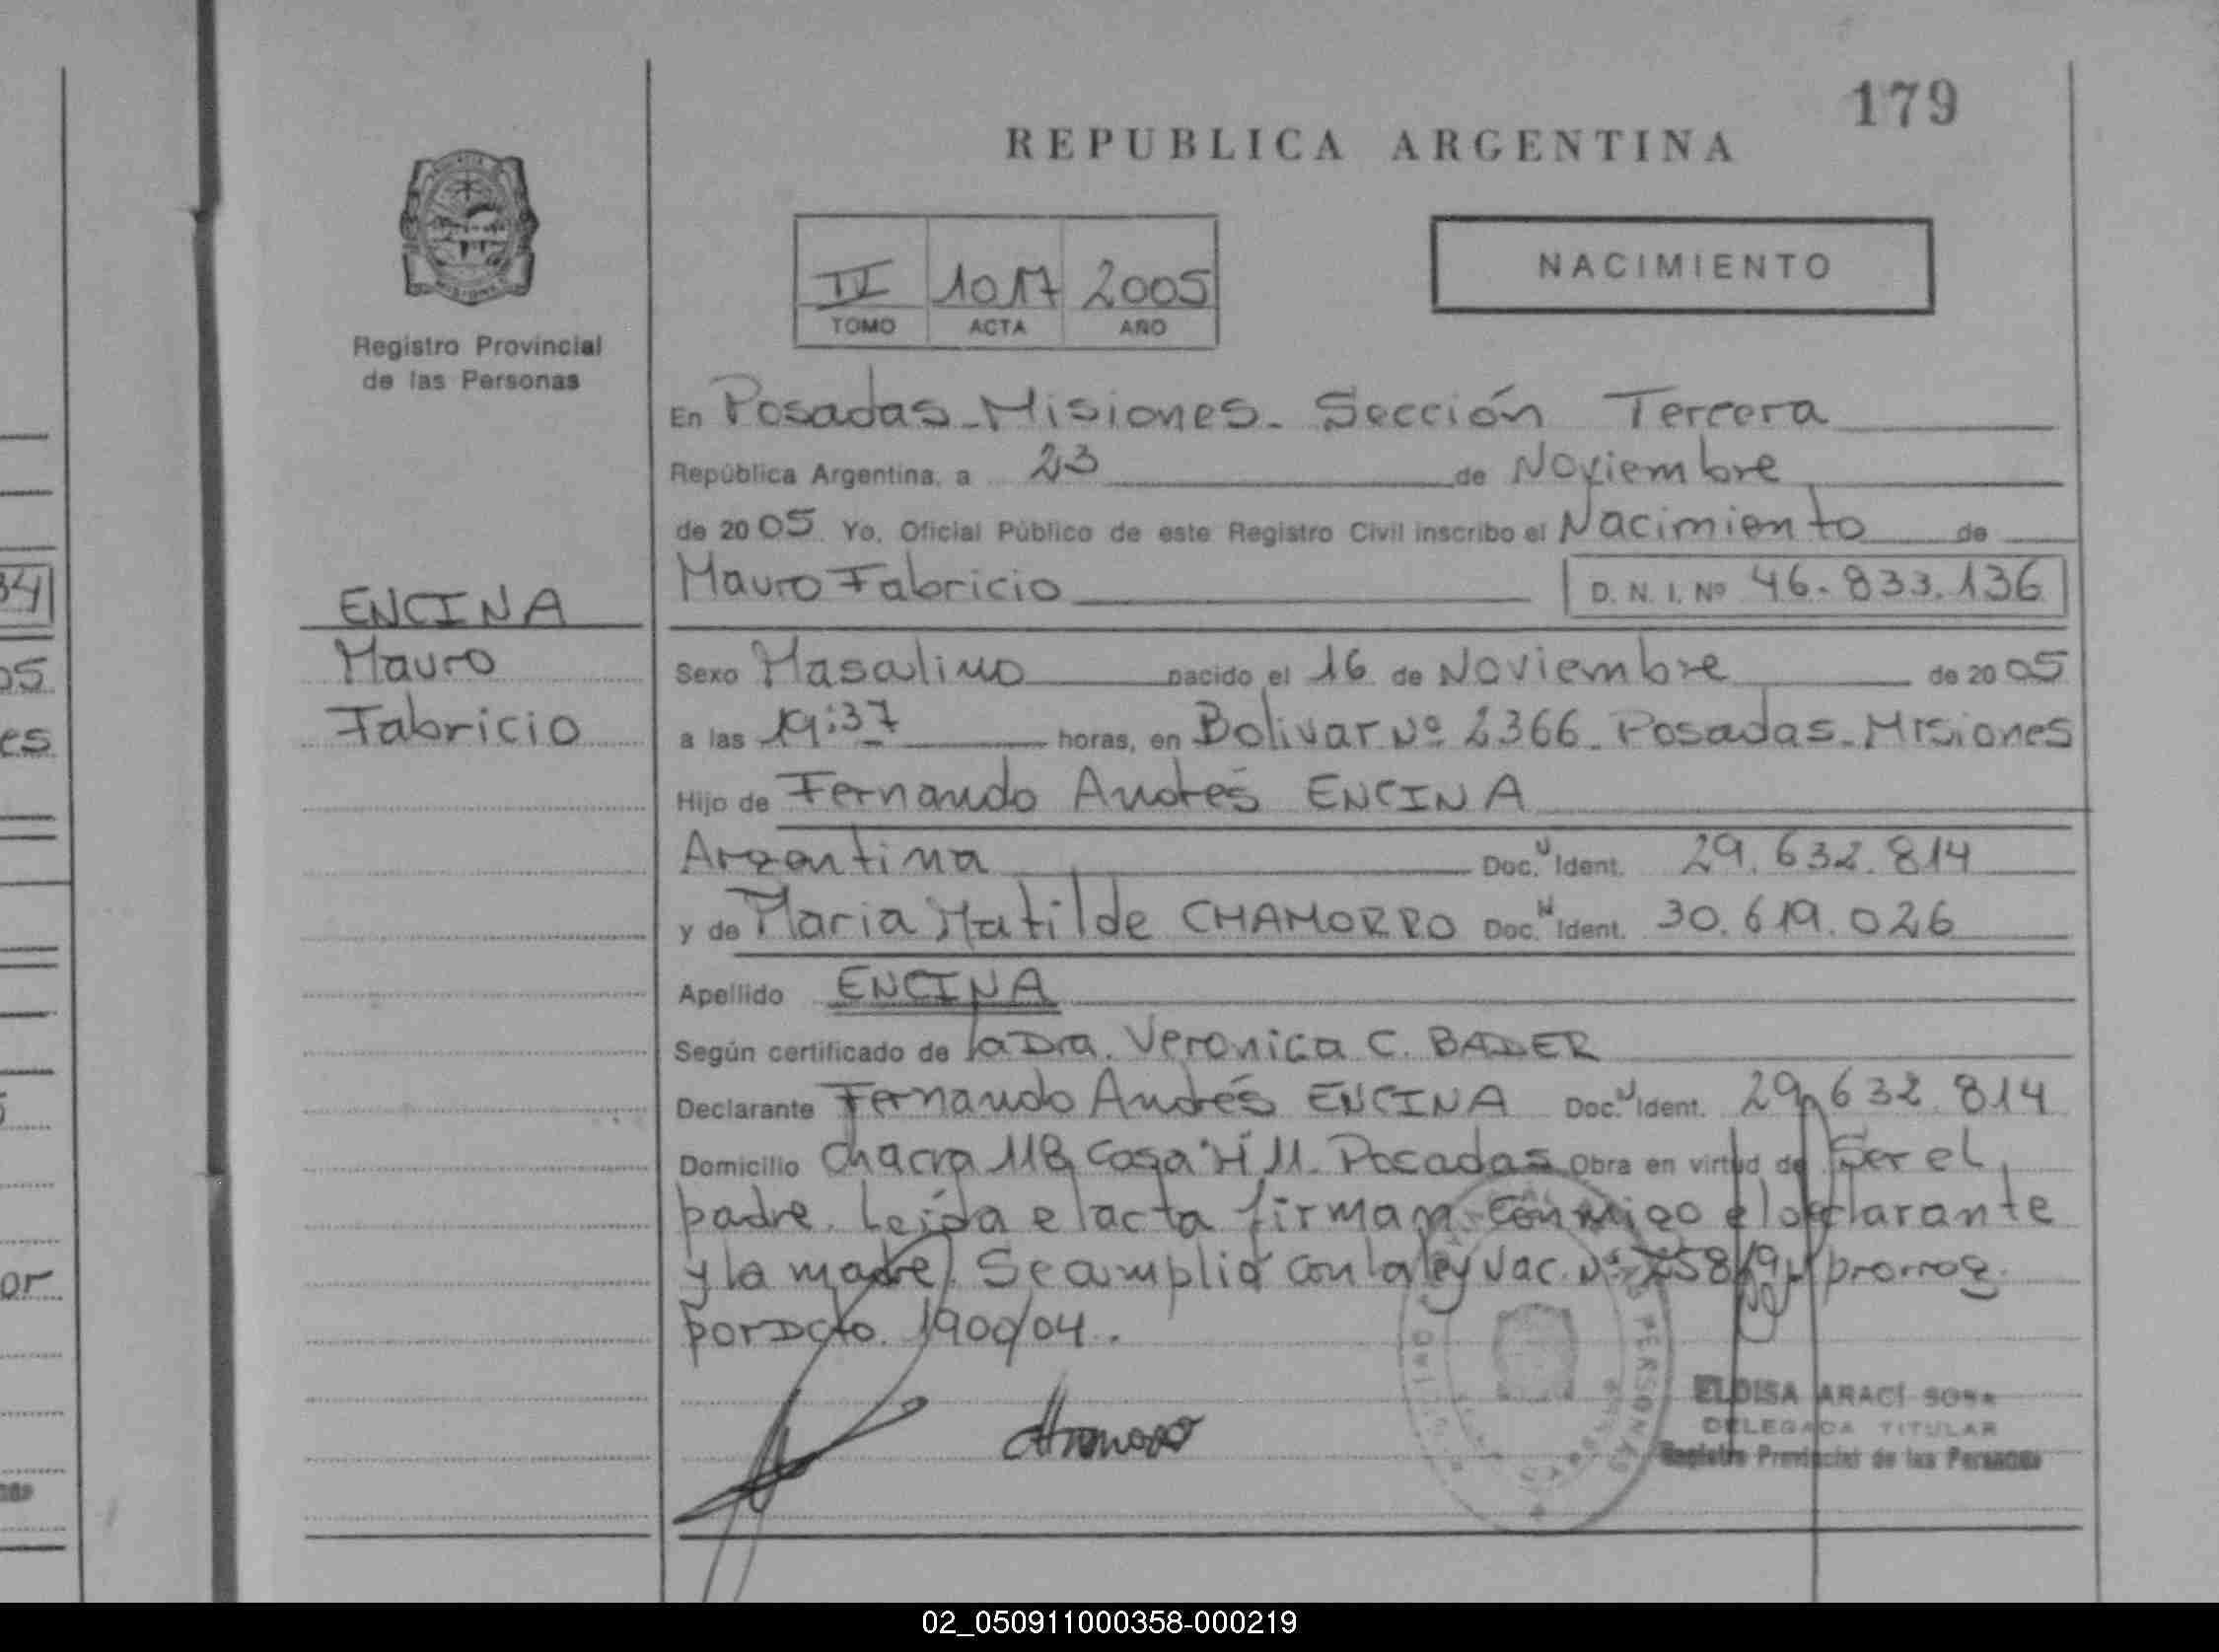 179
REPUBLICA ARGENTINA
IV 1017 2005
TOMO ACTA AÑO
NACIMIENTO
Registro Provincial
de las Personas
En Posadas-Misiones- Sección Tercera
República Argentina, a 23 de Noviembre
de 2005. Yo, Oficial Público de este Registro Civil inscribo el Nacimiento de
Mauro Fabricio D. N. I. Nº 46.833.136
ENCINA
Mauro
Fabricio
Sexo Masculino nacido el 16 de Noviembre de 2005
a las 19:37 horas, en Bolivar Nº 2366. Posadas-Misiones
Hijo de Fernando Andrés ENCINA
Argentina Doc. Ident. 29.632.814
y de Maria Matilde CHAMORRO Doc. Ident. 30.619.026
Apellido ENCINA
Según certificado de la Dra. Veronica C. BADER
Declarante Fernando Andrés ENCINA Doc. Ident. 29.632.814
Domicilio Chacra 118 Casa 11. Posadas Obra en virtud de Ser el
padre. Leída el acta firman conmigo el declarante
y la madre. Se amplió con la ley Vac. prorrog.
por Dcto. 1900/04.
ELOISA ARACÍ SOSA
DELEGADA TITULAR
Registro Provincial de las Personas
34
05
es
or
02_050911000358-000219